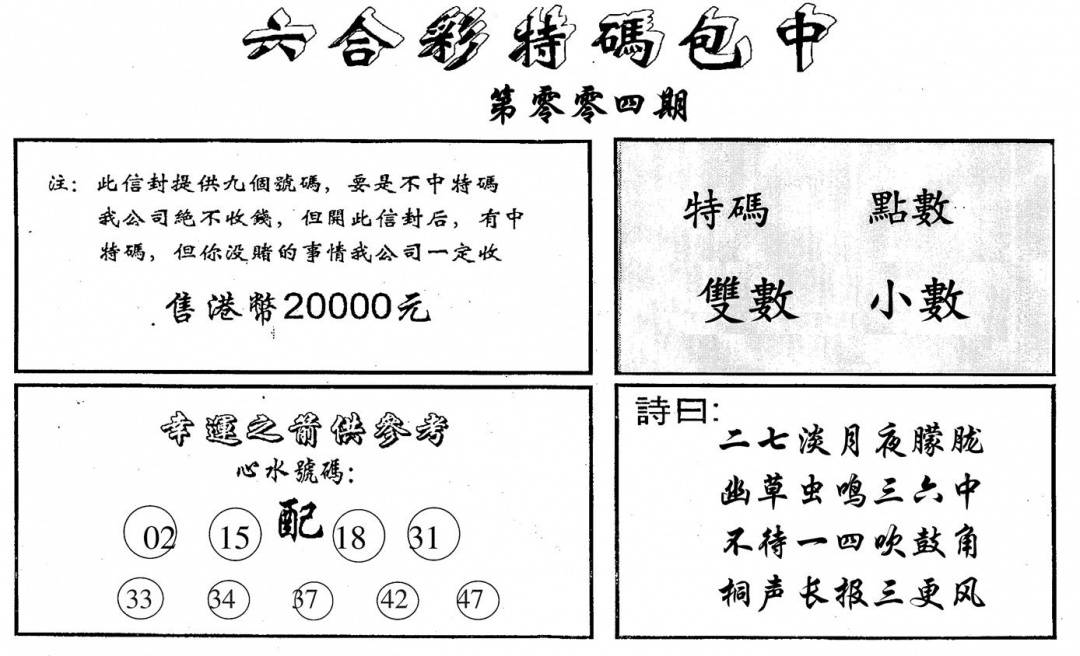 六合彩特碼包中
第零零四期
注：此信封提供九個號碼，要是不中特碼
我公司絕不收錢，但開此信封后，有中
特碼，但你没賭的事情我公司一定收
售港幣20000元
特碼 點數
雙數 小數
幸運之箭供參考
心水號碼：
配
02 15 18 31
33 34 37 42 47
詩曰：
二七淡月夜朦胧
幽草虫鸣三六中
不待一四吹鼓角
桐声长报三更风